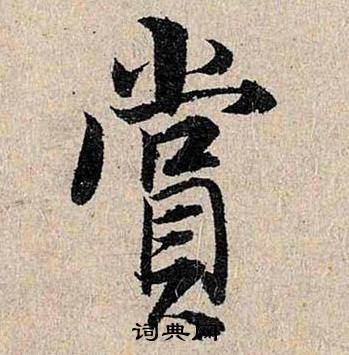 賞
词典网